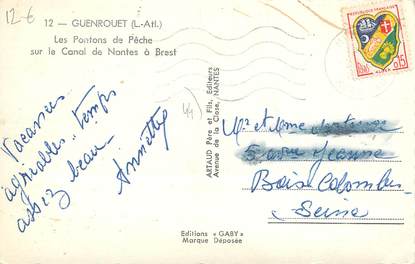 12-6
12 — GUENROUET (L.-Atl.)
Les Pontons de Pêche
sur le Canal de Nantes à Brest
RÉPUBLIQUE FRANÇAISE
0,15
ALGER
Vacances
agréables temps
assez beau
Annette
44
ARTAUD Père et Fils, Editeurs
Avenue de la Close, NANTES
Mr et Mme
5 rue Jeanne
Bois Colombes
Seine
Editions « GABY »
Marque Déposée